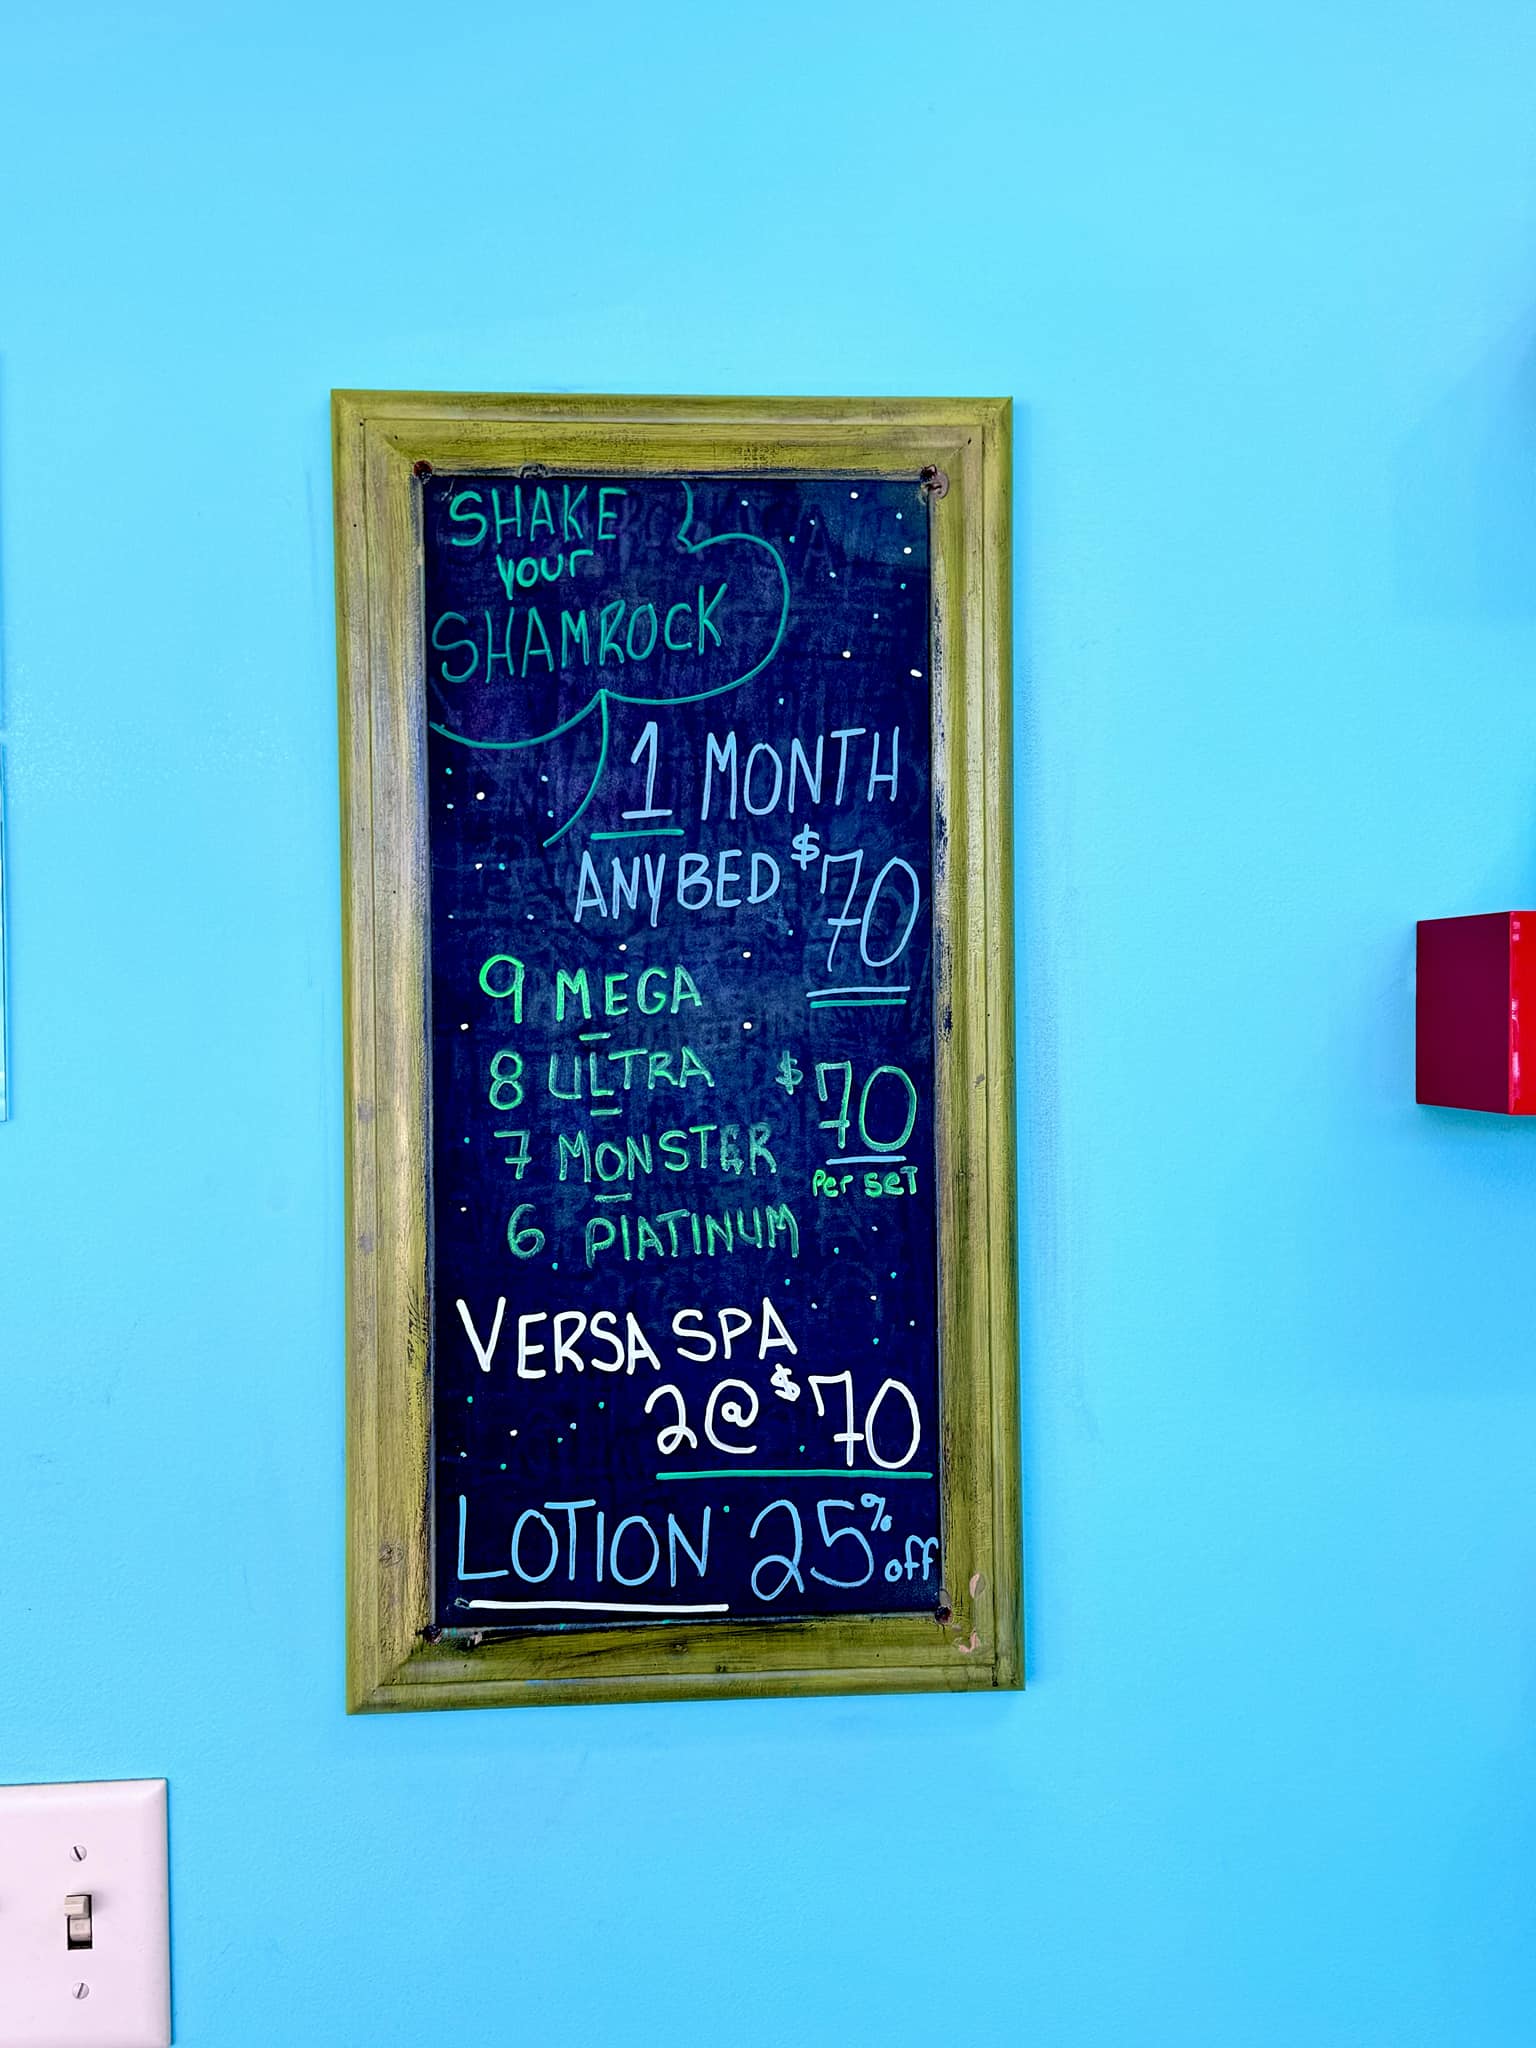 SHAKE
your
SHAMROCK
1 MONTH
ANY BED $70
9 MEGA
8 ULTRA
7 MONSTER
6 PLATINUM
$70
Per SET
VERSA SPA
2@$70
LOTION 25% off